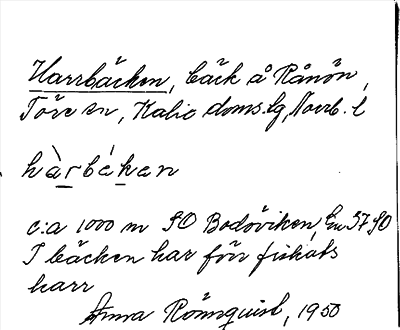 Harrbäcken, bäck å Rånön,
Töre sn, Kalix doms.lg, Norrb. l
hàrbékan
c:a 1000 m SO Bodöviken, 37 SO
I bäcken har förr fiskats
harr
Anna Rönnquist, 1950